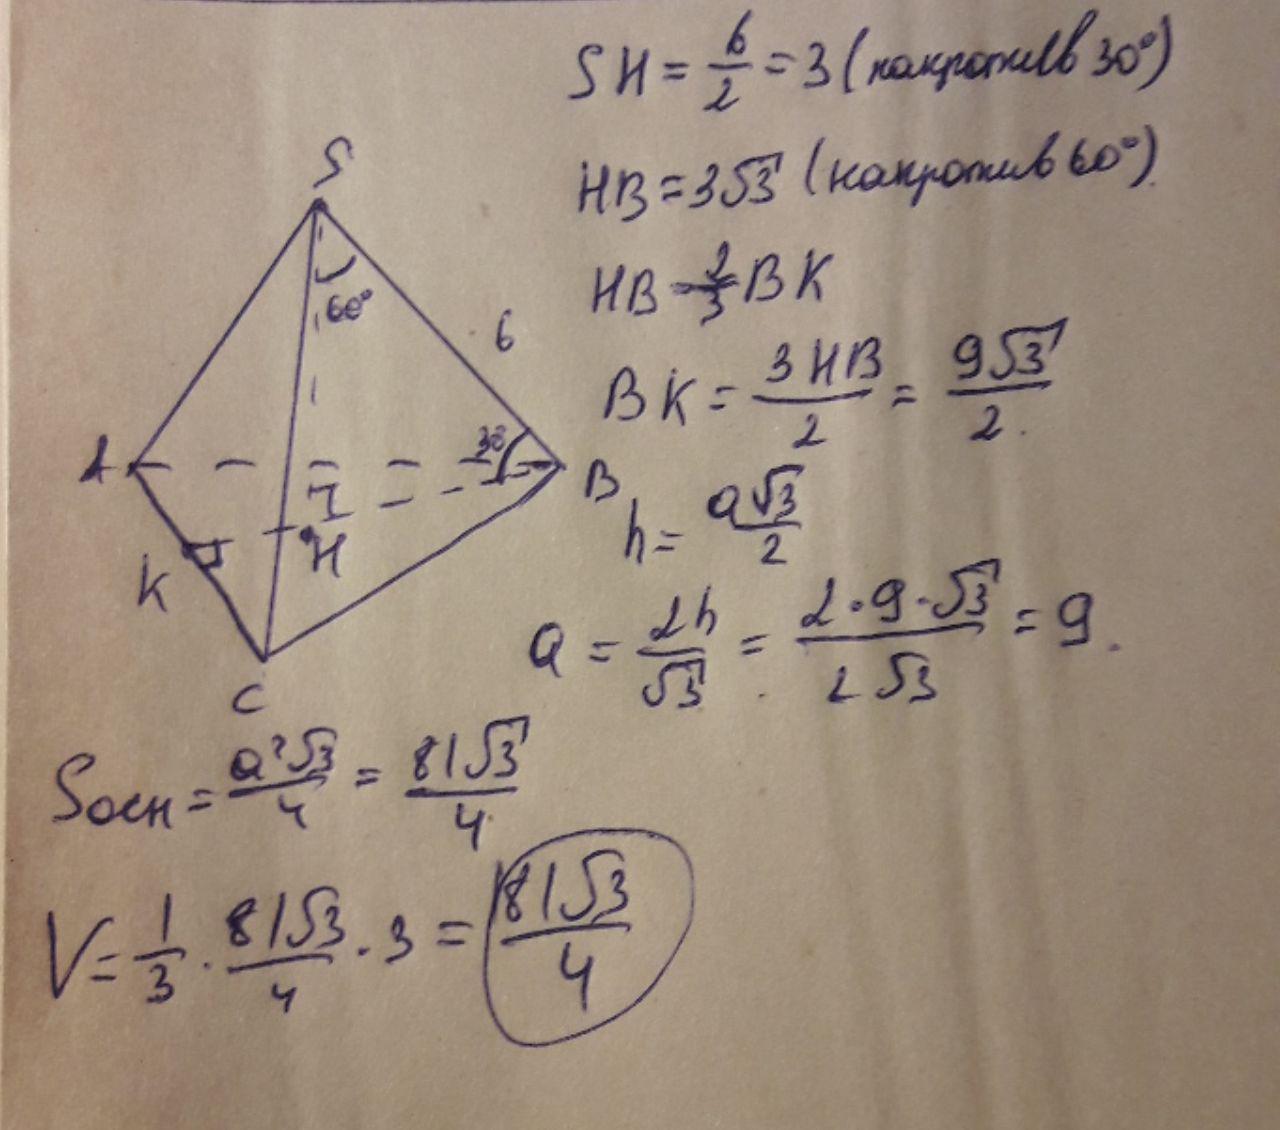 SH = 6/2 = 3 (напротив 30°)
HB = 3√3 (напротив 60°).
HB = 2/3 BK
BK = 3HB/2 = 9√3/2.
h = a√3/2
a = 2h/√3 = 2·9·√3/2√3 = 9.
S
60°
6
30
A
B
H
K
C
Sосн = a²√3/4 = 81√3/4
V = 1/3 · 81√3/4 · 3 = 81√3/4